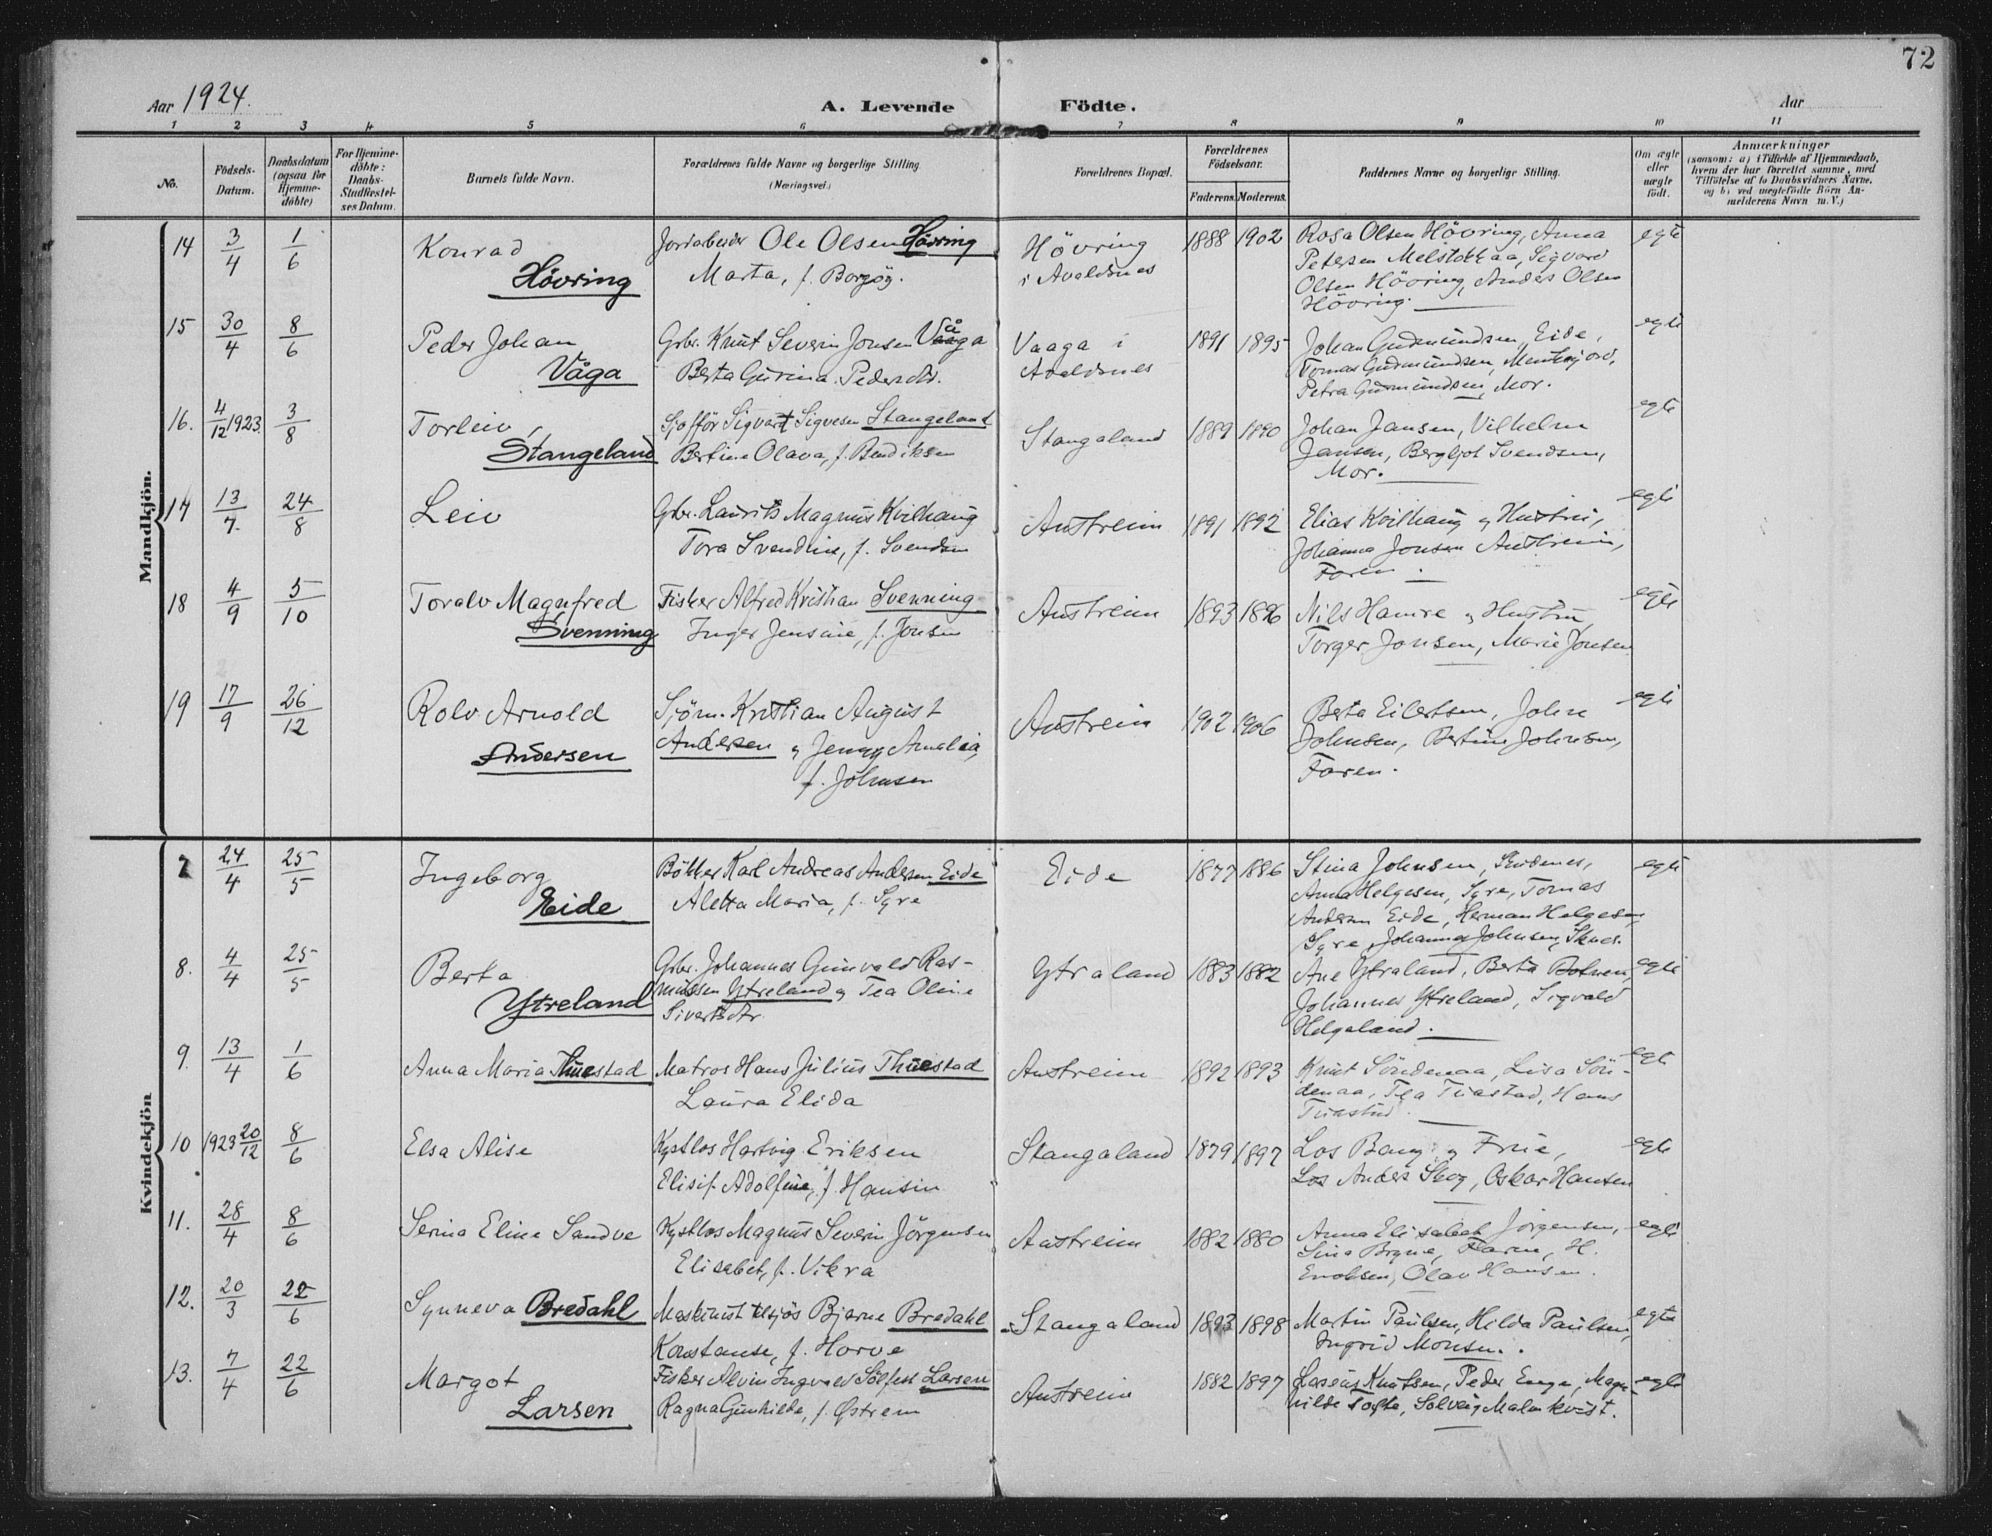 72
Aar 1924.
A. Levende Födte.
Aar
1 2 3 4 5 6 7 8 9 10 11
No.
Födsels-Datum.
Daabsdatum (ogsaa for Hjemme-döbte)
For Hjemme-döbte: Daabs-Stadfæstel-ses Datum.
Barnets fulde Navn.
Forældrenes fulde Navne og borgerlige Stilling.
(Næringsvei.)
Forældrenes Bopæl.
Forældrenes Födselsaar.
Faderens. Moderens.
Faddernes Navne og borgerlige Stilling.
Om ægte eller uægte födt.
Anmærkninger
(saasom: a) i Tilfælde af Hjemmedaab,
hvem der har forrettet samme, med
Tilföielse af to Daabsvidners Navne,
og b) ved uægtefödte Börn An-
melderens Navn m. V.)
Mandkjön.
14 3/4 1/6 Konrad Hövring
Jordarbeider Ole Olsen Hövring
Marta, f. Borgöy.
Hövring
i Avaldsnes
1888 1902
Rosa Olsen Hövring, Anna
Petersen Melstokkaa, Sigvard
Olsen Hövring, Anders Olsen
Hövring.
egte
15 30/4 8/6 Peder Johan Våga
Grbr. Knut Severin Jonsen Våga
Berta Gurina Pedersdtr.
Vaaga i
Avaldsnes
1891 1895
Johan Gudmundsen, Eide,
Tomas Gudmundsen,
Petra Gudmundsen, Mor.
egte
16. 4/12 1923. 3/8 Torleiv, Stangeland
Sjofför Sigvart Sigvesen Stangeland
Bertine Olava, f. Bendiksen
Stangaland
1889 1890
Johan Jansen, Vilhelm
Jansen, Bergljot Svendsen,
Mor.
egte
17 13/7. 24/8 Leiv
Grbr. Laurits Magnus Kvilhaug
Tora Svendine, f. Svendsen
Austreim
1891 1892
Elias Kvilhaug og Hustru,
Johanna Jonsen Austreim,
Faren.
egte
18 4/9 5/10 Toralv Magnfred Svenning
Fisker Alfred Kristian Svenning
Inger Jensine, f. Jonsen
Austreim
1893 1896
Nils Hamre og Hustru,
Torger Jonsen, Marie Jonsen
egte
19 17/9 26/12 Rolv Arnold Andersen
Sjöm. Kristian August
Andersen og Jenny Amalia,
f. Johnsen
Austreim
1902 1906
Berta Eilertsen, John
Johnsen, Bertine Johnsen,
Faren.
egte
Kvindekjön
7 24/4 25/5 Ingeborg Eide
Bökker Karl Andreas Andersen Eide
Aletta Maria, f. Syre
Eide
1877 1886
Stina Johnsen, Skudenes,
Anna Helgesen, Syre, Tomas
Andersen Eide, Herman Helgesen,
Syre, Johannes Johnsen, Skudes.
egte
8. 4/4 25/5 Berta Ytreland
Grbr. Johannes Gunvald Ras-
mussen Ytreland og Tea Oline
Sivertsdtr.
Ytraland
1883 1882
Ane Ytraland, Berta Botnen,
Johannes Ytreland, Sigvald
Helgaland.
egte
9. 13/4 1/6 Anna Maria Thuestad
Matros Hans Julius Thuestad
Laura Elida
Austreim
1892 1893
Knut Söndenaa, Lisa Sön-
denaa, Tea Tuastad, Hans
Tuastad.
egte
10 1923 20/12 8/6 Elsa Alise
Kystlos Hartvig Eriksen
Elisif Adolfine, f. Hansin
Stangaland
1879 1897
Los Bang og Frue,
Los Anders Skog, Oskar Hansen
egte
11. 28/4 8/6 Serina Eline Sandve
Kystlos Magnus Severin Jörgensen
Elisabet, f. Vikra
Austreim
1882 1880
Anna Elisabet Jörgensen,
Sina Bryne, Faren, H.
Enoksen, Olav Hansen.
egte
12. 20/3 22/6 Synneva Bredahl
Maskinist tilsjös Bjarne Bredahl
Konstanse, f. Horve
Stangaland
1893 1898
Martin Paulsen, Hilda Paulsen,
Ingrid Monsen.
egte
13. 7/4 22/6 Margot Larsen
Fisker Alvin Ingvald Sölfest Larsen
Ragna Gunhilde, f. Østrem
Austreim
1882 1897
Lasseus Knutsen, Peder Enge, Magn-
hilde Tofte, Solveig Malmkvist.
egte